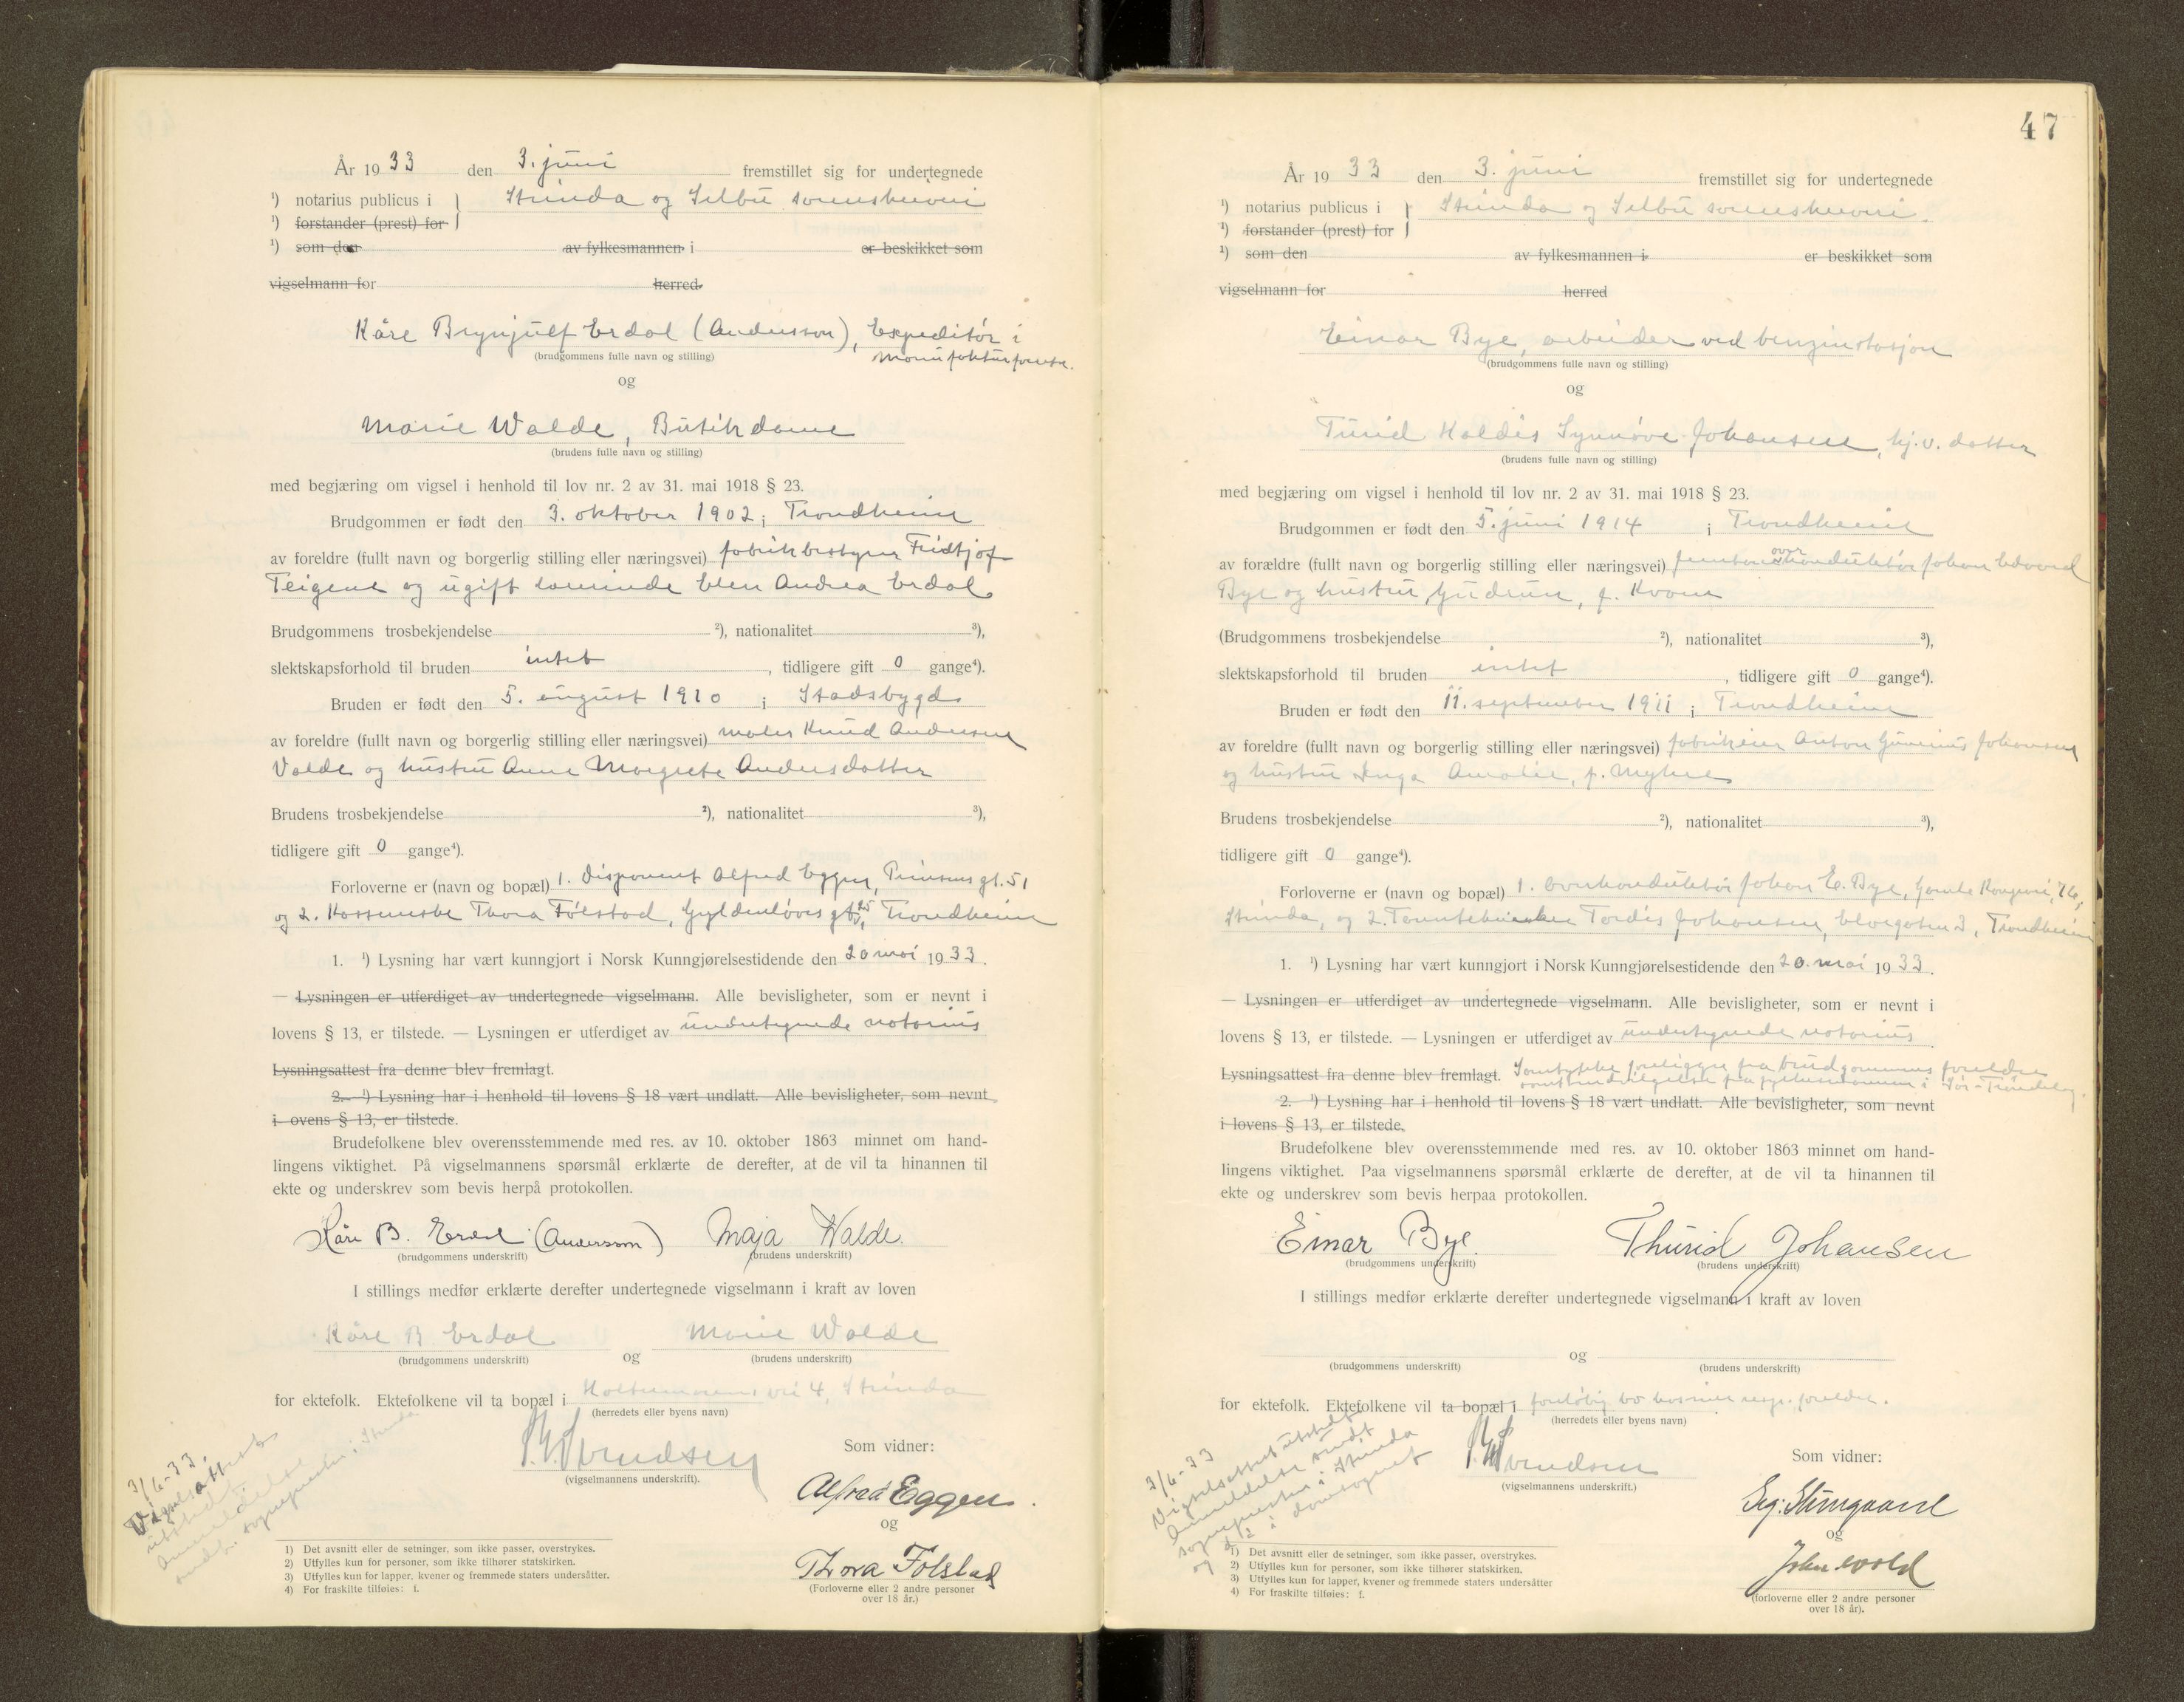 År 1933 den 3. juni fremstillet sig for undertegnede
¹) notarius publicus i Strinda og Selbu sorenskriveri
¹) forstander (prest) for
¹) som den av fylkesmannen i er beskikket som
vigselmann for herred.
Kåre Brynjulf Erdal (Anderssen), Expeditør i
manufakturforretn.
(brudgommens fulle navn og stilling)
og
Marie Walde, Butikdame
(brudens fulle navn og stilling)
med begjæring om vigsel i henhold til lov nr. 2 av 31. mai 1918 § 23.
Brudgommen er født den 3. oktober 1902 i Trondheim
av foreldre (fullt navn og borgerlig stilling eller næringsvei) fabrikbestyrer Fridtjof
Teigene og ugift kvinde Elen Andrea Erdal
Brudgommens trosbekjendelse ²), nationalitet ³),
slektskapsforhold til bruden intet, tidligere gift 0 gange⁴).
Bruden er født den 5. august 1910 i Stadsbygd
av foreldre (fullt navn og borgerlig stilling eller næringsvei) maler Knud Andersen
Valde og hustru Anne Margrete Andersdatter
Brudens trosbekjendelse ²), nationalitet ³),
tidligere gift 0 gange⁴).
Forloverne er (navn og bopæl) 1. Disponent Alfred Eggen, Prinsens gt. 51
og 2. Kassererske Thora Følstad, Gyldenløves gt. 25, Trondheim
1. ¹) Lysning har vært kunngjort i Norsk Kunngjørelsestidende den 20 mai 1933.
— Lysningen er utferdiget av undertegnede vigselmann. Alle bevisligheter, som er nevnt i
lovens § 13, er tilstede. — Lysningen er utferdiget av undertegnede notarius
Lysningsattest fra denne blev fremlagt.
2. ¹) Lysning har i henhold til lovens § 18 vært undlatt. Alle bevisligheter, som nevnt
i ovens § 13, er tilstede.
Brudefolkene blev overensstemmende med res. av 10. oktober 1863 minnet om hand-
lingens viktighet. På vigselmannens spørsmål erklærte de derefter, at de vil ta hinannen til
ekte og underskrev som bevis herpå protokollen.
Kåre B. Erdal (Anderssen) Maja Walde.
(brudgommens underskrift) (brudens underskrift)
I stillings medfør erklærte derefter undertegnede vigselmann i kraft av loven
Kåre B Erdal og Marie Walde
(brudgommens underskrift) (brudens underskrift)
for ektefolk. Ektefolkene vil ta bopæl i vei 4, Strinda
(herredets eller byens navn)
Svendsen
(vigselmannens underskrift).
Som vidner:
Alfred Eggen.
og
Thora Følstad
(Forloverne eller 2 andre personer
over 18 år.)
3/6-33.
Vigselsattest
utstedt
Anmeldelse
sendt sognepresten i Strinda
1) Det avsnitt eller de setninger, som ikke passer, overstrykes.
2) Utfylles kun for personer, som ikke tilhører statskirken.
3) Utfylles kun for lapper, kvener og fremmede staters undersåtter.
4) For fraskilte tilføies: f.
47
År 1933 den 3. juni fremstillet sig for undertegnede
¹) notarius publicus i Strinda og Selbu sorenskriveri.
¹) forstander (prest) for
¹) som den av fylkesmannen i er beskikket som
vigselmann for herred
Einar Bye, arbeider ved benzinstasjon
(brudgommens fulle navn og stilling)
og
Turid Haldis Synnøve Johansen, hj.v. datter
(brudens fulle navn og stilling)
med begjæring om vigsel i henhold til lov nr. 2 av 31. mai 1918 § 23.
Brudgommen er født den 5. juni 1914 i Trondheim
av forældre (fullt navn og borgerlig stilling eller næringsvei) overkonduktør Johan Edvard
Bye og hustru Gudrun, f. Kvam
(Brudgommens trosbekjendelse ²), nationalitet ³),
slektskapsforhold til bruden intet, tidligere gift 0 gange⁴).
Bruden er født den 11. september 1911 i Trondheim
av foreldre (fullt navn og borgerlig stilling eller næringsvei) fabrikeier Anton Gunerius Johansen
og hustru Inga Amalie, f. Myhre
Brudens trosbekjendelse ²), nationalitet ³),
tidligere gift 0 gange⁴).
Forloverne er (navn og bopæl) 1. Overkonduktør Johan E. Bye, Gamle Kongevei 76,
Strinda, og 2. Tordis Johansen, Elvegaten 3, Trondheim
1. ¹) Lysning har vært kunngjort i Norsk Kunngjørelsestidende den 20. mai 1933.
— Lysningen er utferdiget av undertegnede vigselmann. Alle bevisligheter, som er nevnt i
lovens § 13, er tilstede. — Lysningen er utferdiget av undertegnede notarius.
Lysningsattest fra denne blev fremlagt. Samtykke foreligger fra brudgommens foreldre
samt fra fylkesmannen i Sør-Trøndelag.
2. ¹) Lysning har i henhold til lovens § 18 vært undlatt. Alle bevisligheter, som nevnt
i lovens § 13, er tilstede.
Brudefolkene blev overensstemmende med res. av 10. oktober 1863 minnet om hand-
lingens viktighet. Paa vigselmannens spørsmål erklærte de derefter, at de vil ta hinannen til
ekte og underskrev som bevis herpaa protokollen.
Einar Bye. Thurid Johansen
(brudgommens underskrift) (brudens underskrift)
I stillings medfør erklærte derefter undertegnede vigselmann i kraft av loven
og
(brudgommens underskrift) (brudens underskrift)
for ektefolk. Ektefolkene vil ta bopæl i foreløbig bo hos sine resp. foreldre.
(herredets eller byens navn)
Svendsen
(vigselmannens underskrift.)
Som vidner:
og
John Wold
(forloverne eller 2 andre personer
over 18 år).
3/6-33
Vigselsattest utstedt
Anmeldelse sendt
sognepresten i Strinda
og i domsognet
1) Det avsnitt eller de setninger, som ikke passer, overstrykes.
2) Utfylles kun for personer, som ikke tilhører statskirken.
3) Utfylles kun for lapper, kvener og fremmede staters undersåtter
4) For fraskilte tilføies: f.